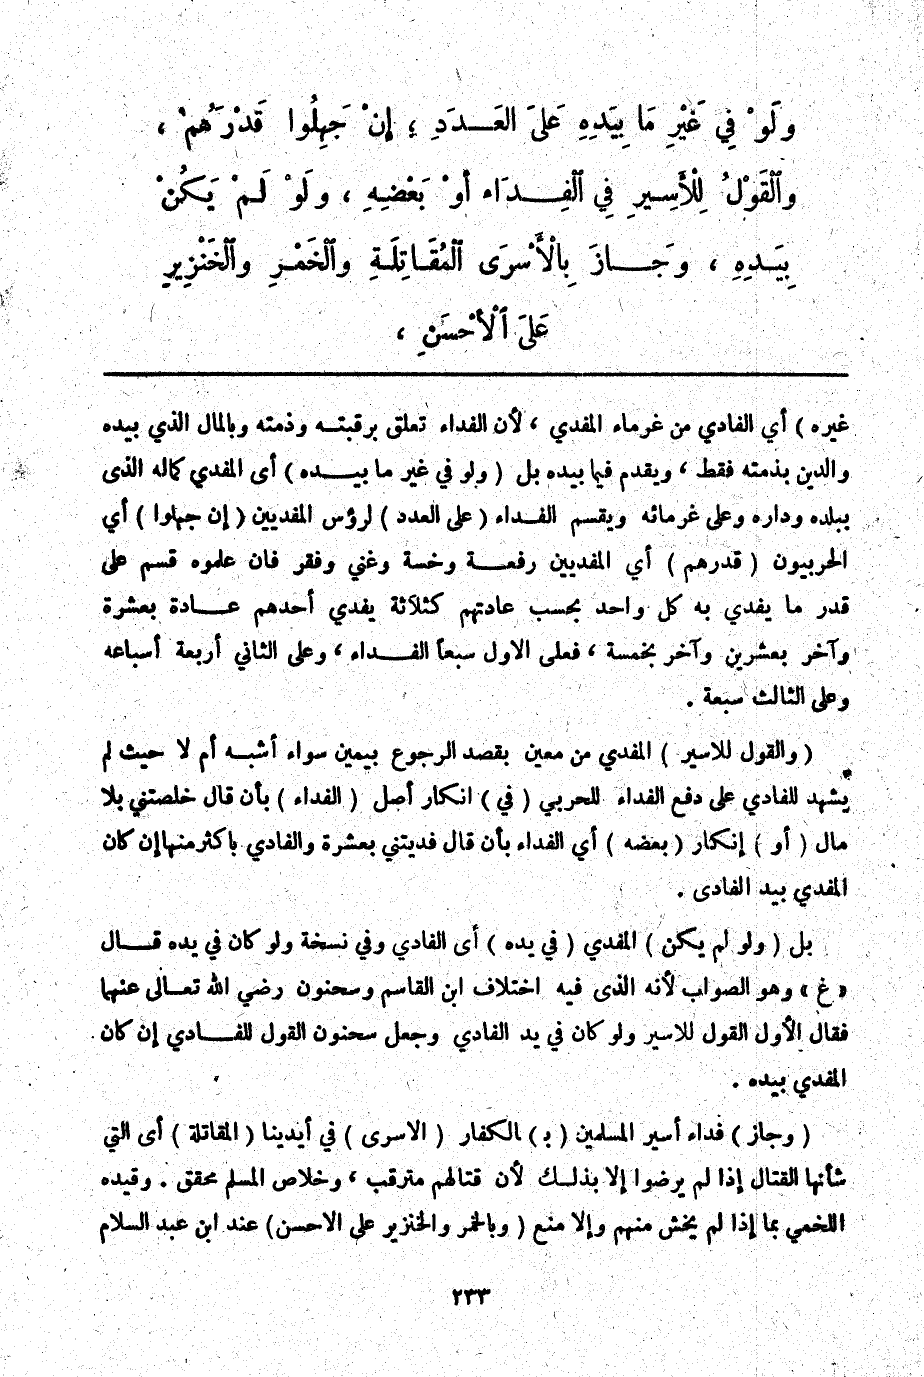 ولَوْ فِي غَيْرِ مَا بِيَدِهِ عَلَى العَدَدِ ؛ إِنْ جَهِلُوا قَدْرَهُمْ ،
وٱلْقَوْلُ لِلْأَسِيرِ فِي ٱلْفِدَاء أَوْ بَعْضِهِ ، ولَوْ لَمْ يَكُنْ
بِيَدِهِ ، وجَازَ بِالْأَسْرَى ٱلمُقَاتِلَةِ وٱلْخَمْرِ وٱلْخَنْزِيرِ
عَلَى ٱلْأَحْسَنِ ،
غيره ) أي الفادي من غرماء المفدي ، لأن الفداء تعلق برقبته وذمته وبالمال الذي بيده
والدين بذمته فقط ، ويقدم فيما بيده بل ( ولو في غير ما بيده ) أى المفدي كماله الذى
ببلده وداره وعلى غرمائه ويقسم الفداء ( على العدد ) لرؤس المفديين ( إن جهلوا ) أي
الحربيون ( قدرهم ) أي المفديين رفعة وخسة وغني وفقر فان علموه قسم على
قدر ما يفدي به كل واحد بحسب عادتهم كثلاثة يفدي أحدهم عادة بعشرة
وآخر بعشرين وآخر بخمسة ، فعلى الاول سبعا الفداء ، وعلى الثاني أربعة أسباعه
وعلى الثالث سبعة .
( والقول للاسير ) المفدي من معين بقصد الرجوع بيمين سواء أشبه أم لا حيث لم
يشهد للفادي على دفع الفداء للحربي ( في ) انكار أصل ( الفداء ) بأن قال خلصتني بلا
مال ( أو ) إنكار ( بعضه ) أي الفداء بأن قال فديتني بعشرة والفادي باكثر منها إن كان
المفدي بيد الفادى .
بل ( ولو لم يكن ) المفدي ( في يده ) أى الفادي وفي نسخة ولو كان في يده قال
« غ » وهو الصواب لأنه الذى فيه اختلاف ابن القاسم وسحنون رضي الله تعالى عنهما
فقال الأول القول للاسير ولو كان في يد الفادي وجعل سحنون القول للفادي إن كان
المفدي بيده .
( وجاز ) فداء أسير المسلمين ( بـ ) الكفار ( الاسرى ) في أيدينا ( المقاتلة ) أى التي
شأنها القتال إذا لم يرضوا إلا بذلك لأن قتالهم مترقب ، وخلاص المسلم محقق . وقيده
اللخمي بما إذا لم يخش منهم وإلا منع ( وبالخمر والخنزير على الاحسن ) عند ابن عبد السلام
٢٣٣